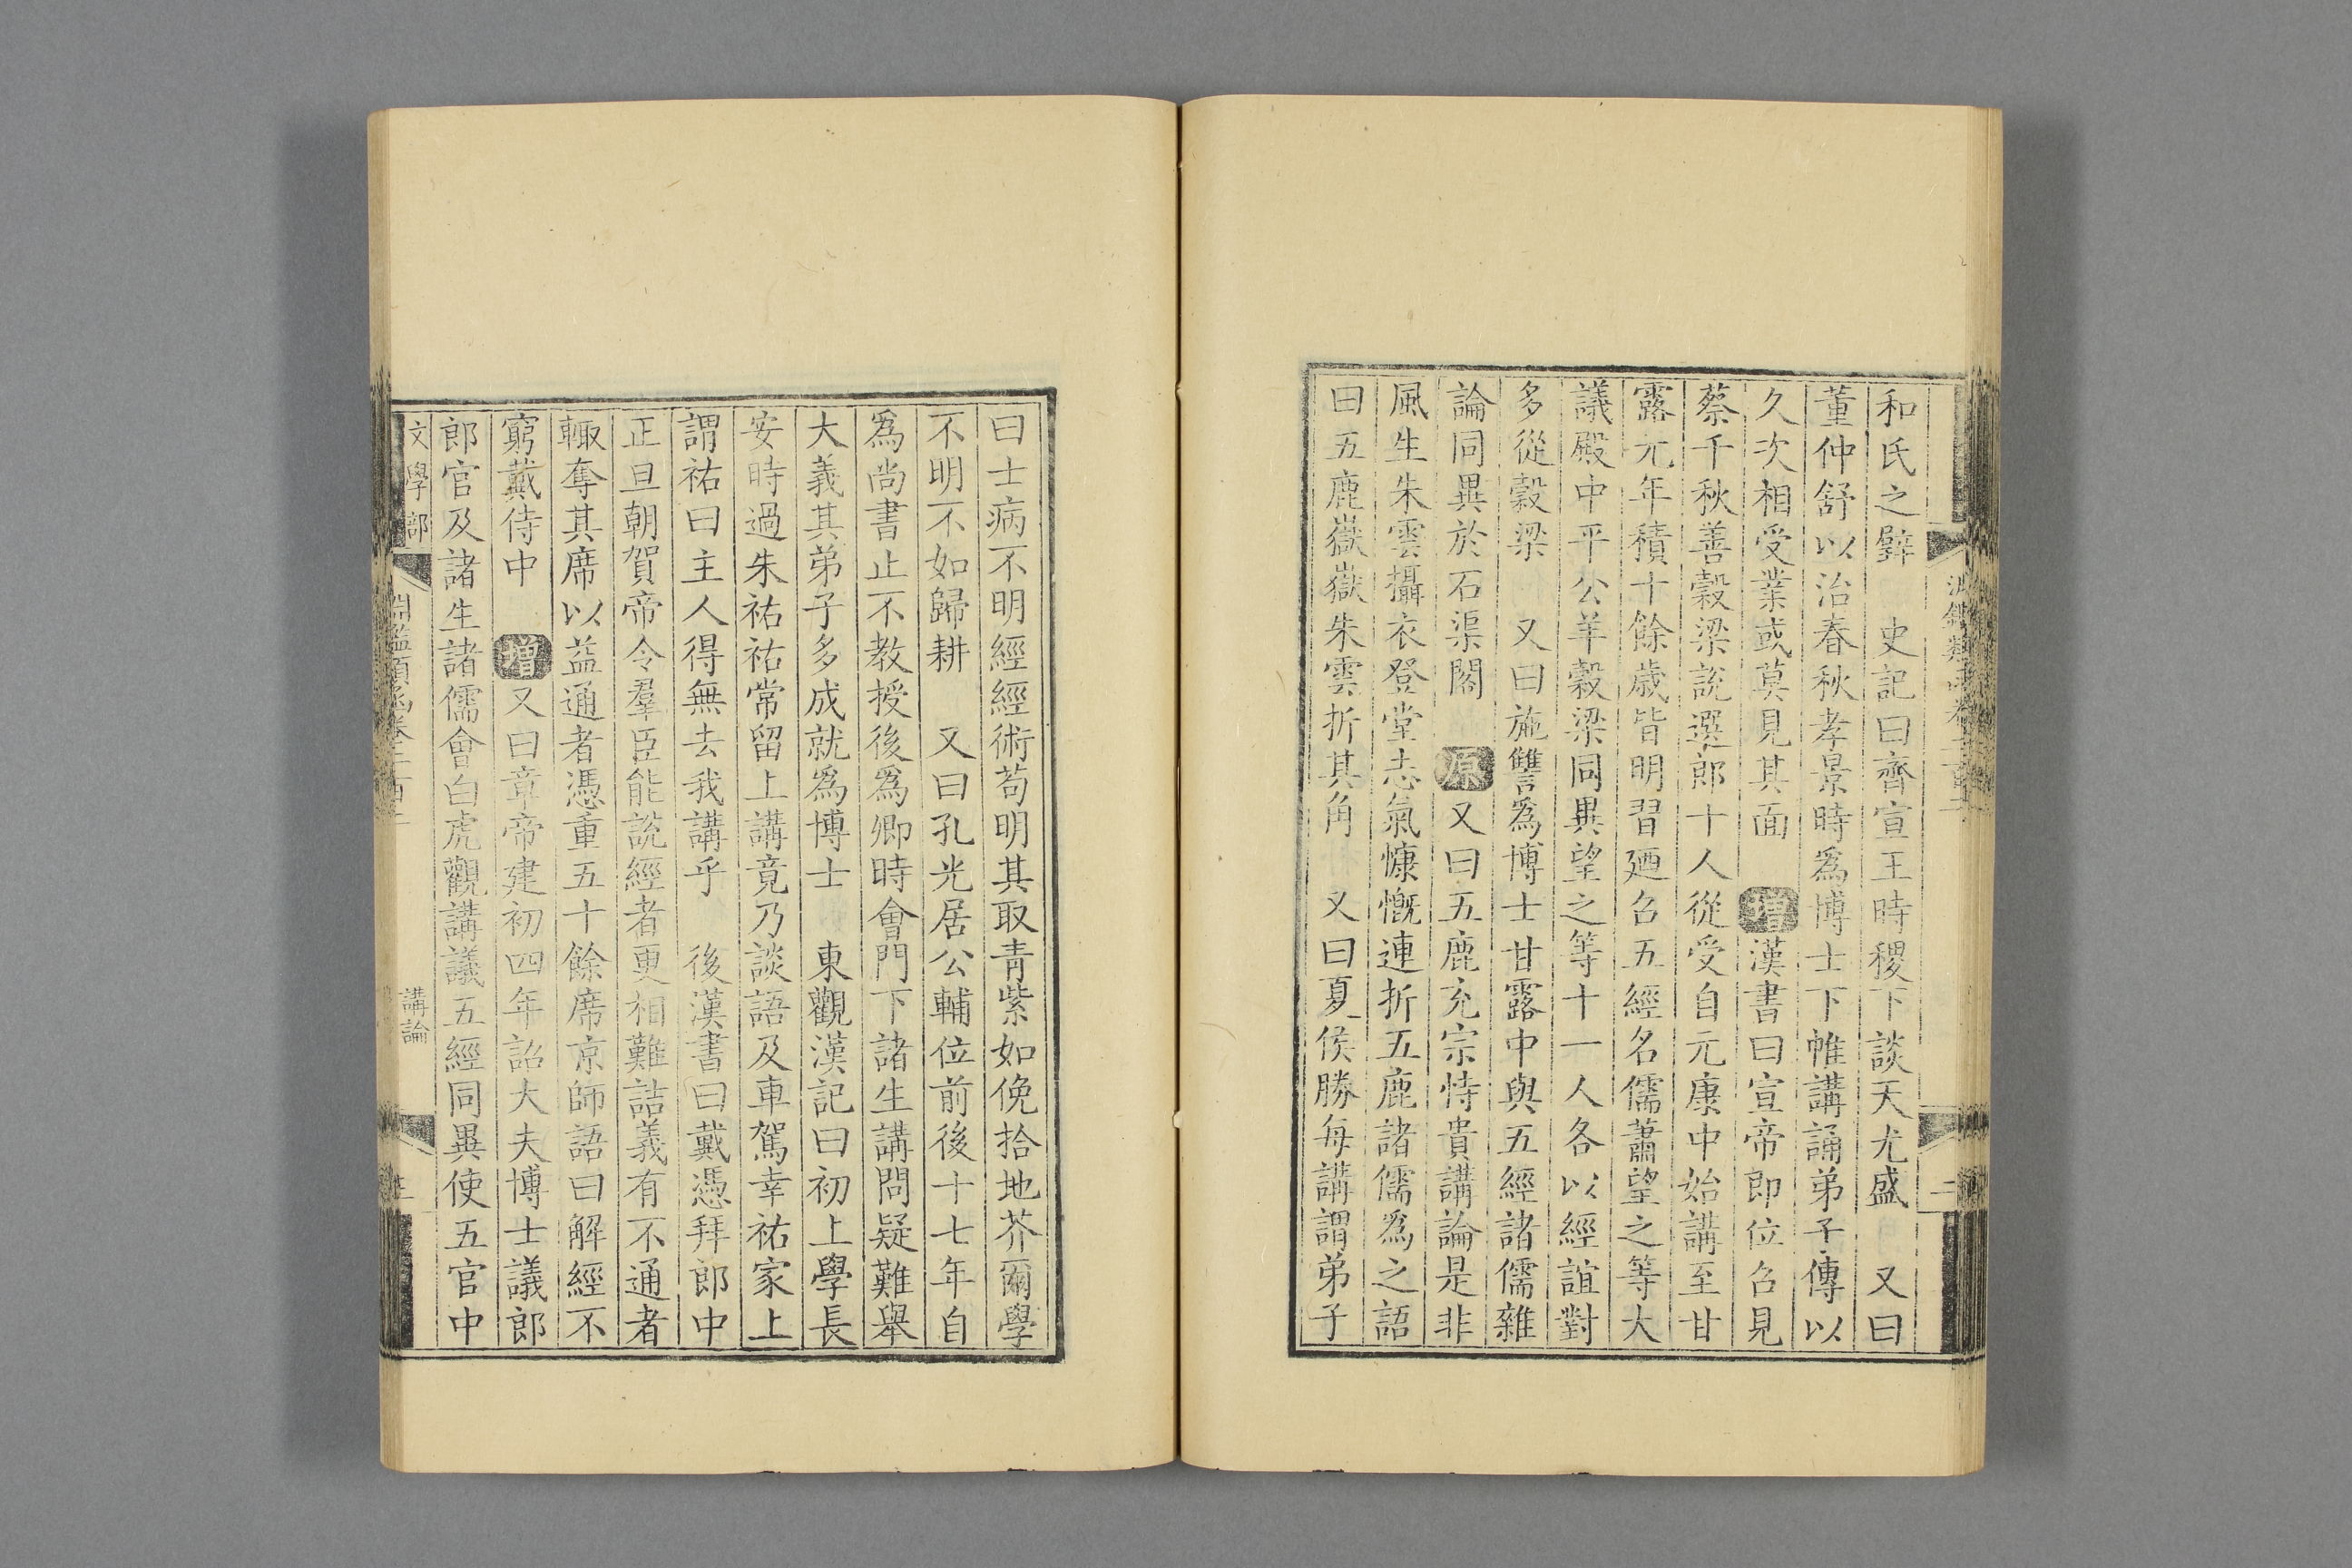 和氏之璧　史記曰齊宣王時稷下談天尤盛　又曰
董仲舒以治春秋孝景時爲博士下帷講誦弟子傳以
久次相受業或莫見其面　增漢書曰宣帝即位召見
蔡千秋善穀梁說選郎十人從受自元康中始講至甘
露元年積十餘歲皆明習廼召五經名儒蕭望之等大
議殿中平公羊穀梁同異望之等十一人各以經誼對
多從穀梁　又曰施讐爲博士甘露中與五經諸儒雜
論同異於石渠閣　原又曰五鹿充宗恃貴講論是非
風生朱雲攝衣登堂志氣慷慨連折五鹿諸儒爲之語
曰五鹿嶽嶽朱雲折其角　又曰夏侯勝每講謂弟子
曰士病不明經經術苟明其取靑紫如俛拾地芥爾學
不明不如歸耕　又曰孔光居公輔位前後十七年自
爲尚書止不教授後爲卿時會門下諸生講問疑難舉
大義其弟子多成就爲博士　東觀漢記曰初上學長
安時過朱祐祐常留上講竟乃談語及車駕幸祐家上
謂祐曰主人得無去我講乎　後漢書曰戴憑拜郎中
正旦朝賀帝令羣臣能說經者更相難詰義有不通者
輙奪其席以益通者憑重五十餘席京師語曰解經不
窮戴侍中　增又曰章帝建初四年詔大夫博士議郎
郎官及諸生諸儒會白虎觀講議五經同異使五官中
文學部
講論